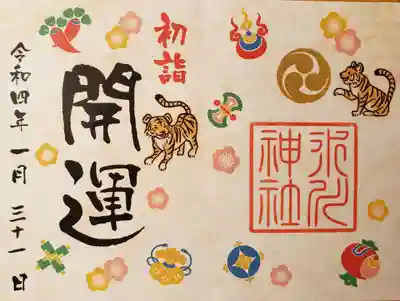 氷川
神社
初詣
開運
令和四年 一月 三十一日